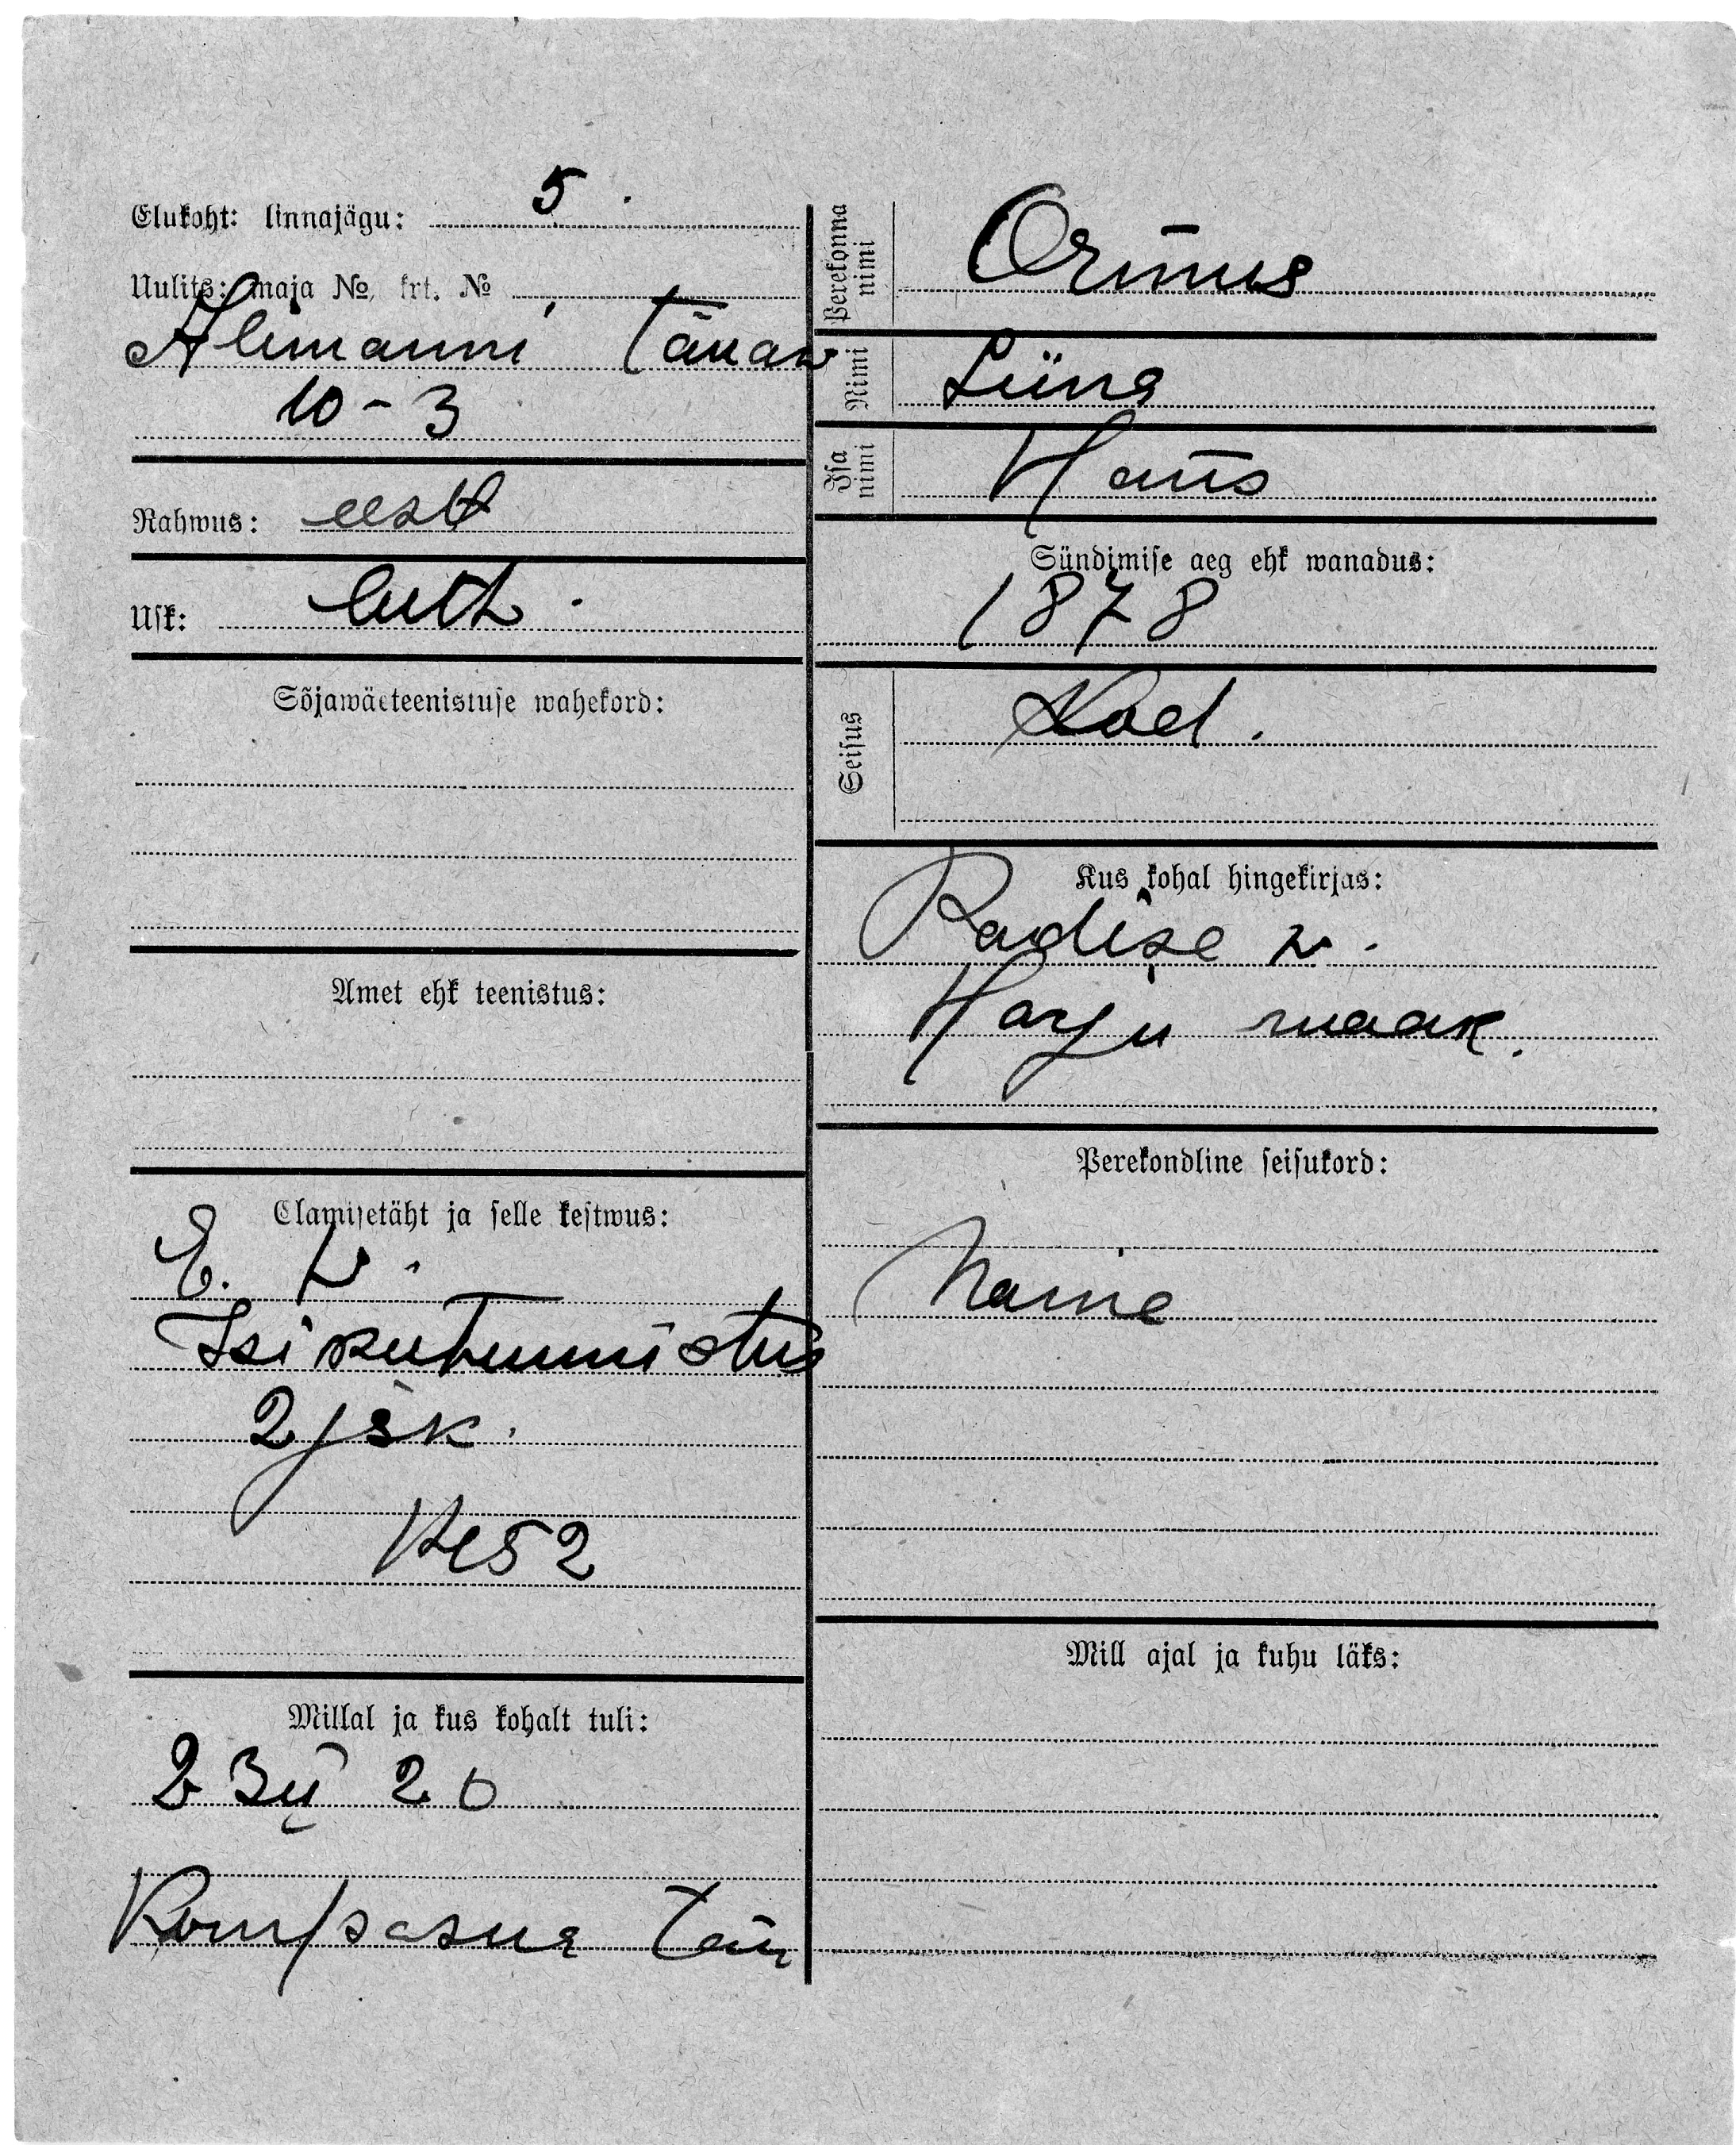 Elukoht: linnajägu: 5.
Uulits: maja № krt. №
Alimanni tänaw
10-3
Rahwus: eest
Usk: luth.
Sõjawäeteenistuse wahekord:
Amet ehk teenistus:
Elamisetäht ja selle kestwus:
E. W.
Isikutunnistus
2 jsk.
№ 52
Millal ja kus kohalt tuli:
20
Kompasna tän
Perekonna nimi
Nimi Liina
Isa nimi Hans
Sündimise aeg ehk wanadus:
1878
Seisus Kod.
Kus kohal hingekirjas:
Padise w.
Harju maak.
Perekondline seisukord:
Naine
Mill ajal ja kuhu läks: